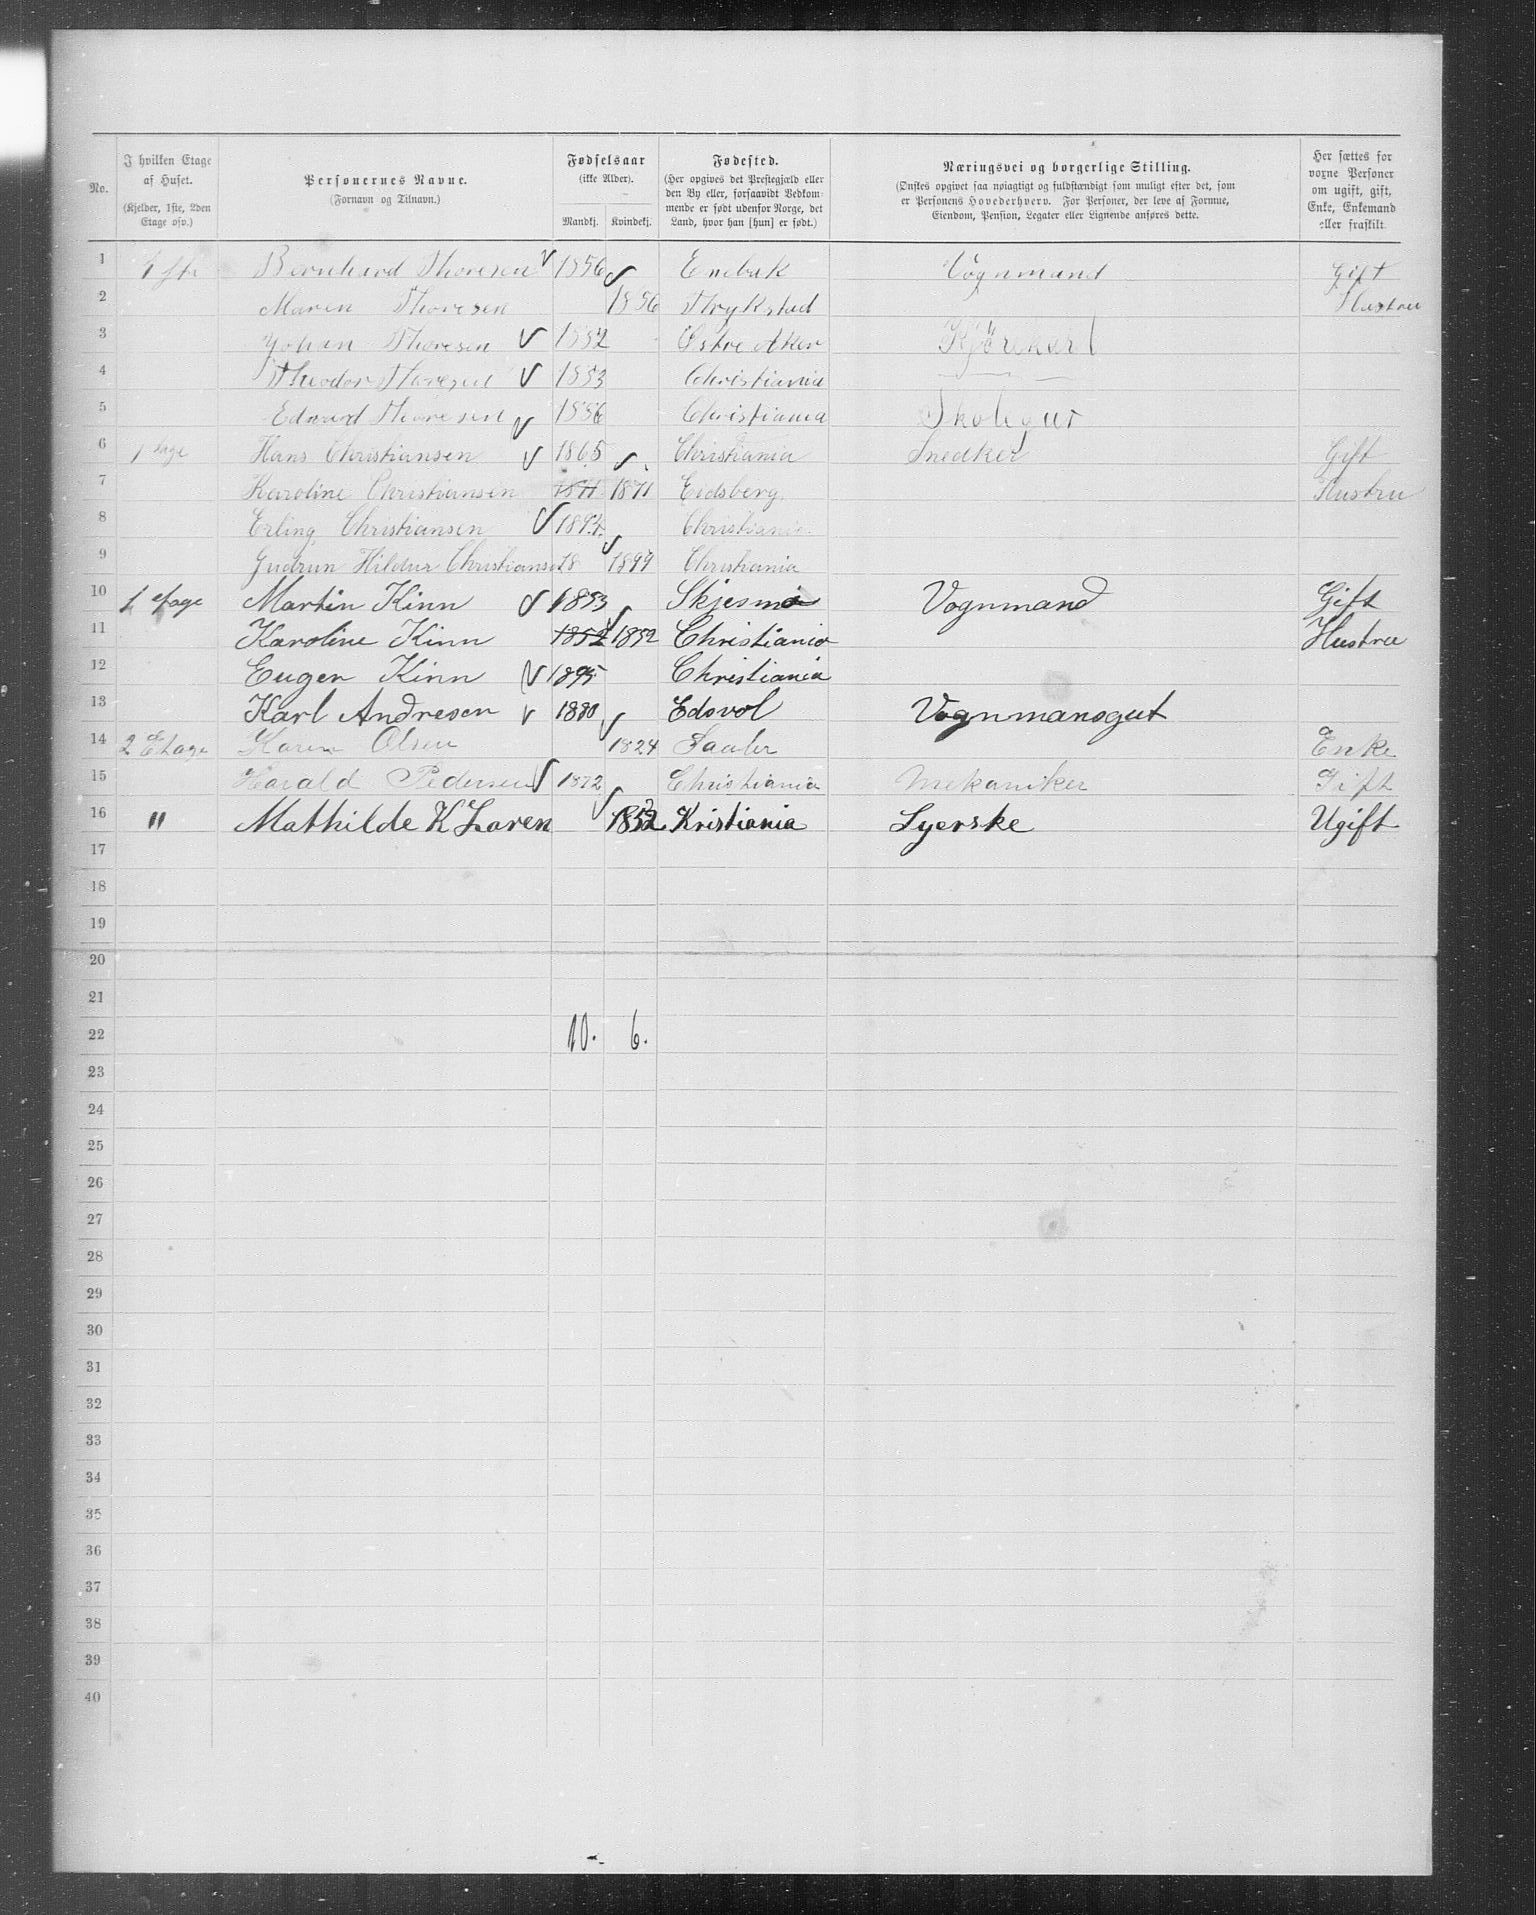 No. | I hvilken Etage af Huset. (Kjelder, 1ste, 2den Etage osv.) | Personernes Navne. (Fornavn og Tilnavn.) | Fødselsaar (ikke Alder). Mandkj. Kvindekj. | Fødested. (Her opgives det Prestegjæld eller den By eller, forsaavidt Vedkommende er født udenfor Norge, det Land, hvor han [hun] er født.) | Næringsvei og borgerlige Stilling. (Ønskes opgivet saa nøiagtigt og fuldstændigt som muligt efter det, som er Personens Hovederhverv. For Personer, der leve af Formue, Eiendom, Pension, Legater eller Lignende anføres dette. | Her sættes for voxne Personer om ugift, gift, Enke, Enkemand eller fraskilt.
1 Bernhard Thoresen 1856 Enebak Vognmand Gift
2 Maren Thoresen 1856 Thrykstad Hustru
3 Johan Thoresen Østre Aker Kjörekarl
4 Theodor Thoresen Christiania
5 Edvard Thoresen Christiania Skolegut
6 1 Hans Christiansen 1865 Christiania Snedker Gift
7 Karoline Christiansen 1871 1871 Eidsberg Hustru
8 Erling Christiansen Christiania
9 Gudrun Hildur Christiansen 18 1899 Christiania
10 1 etage Martin Kinn 1853 Skjesmo Vognmand Gift
11 Karoline Kinn 1852 1852 Christiania Hustru
12 Eugen Kinn 1895 Christiania
13 Karl Andresen 1880 Edsvol Vognmansgut
14 2 Etage Karen Olsen 1824 Enke
15 Harald Pedersen 1872 Christiania Mekaniker Gift
16 " Mathilde K Laren 1852 Kristiania Syerske Ugift
17
18
19
20
21
22 10. 6.
23
24
25
26
27
28
29
30
31
32
33
34
35
36
37
38
39
40